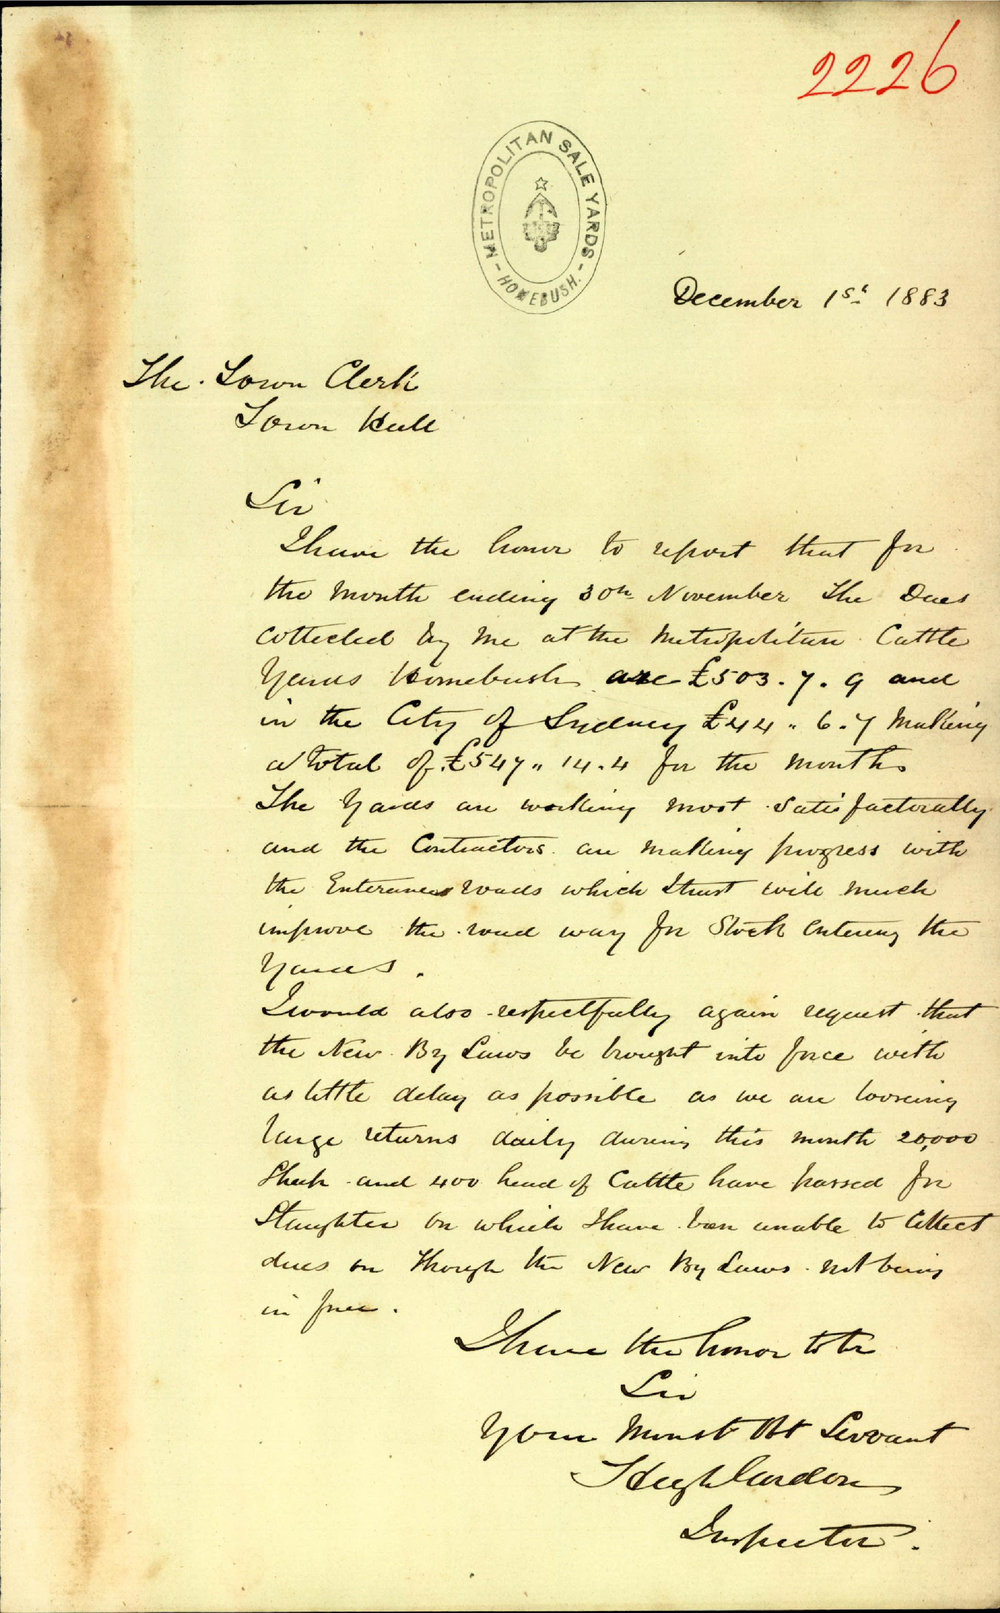 2226
METROPOLITAN SALE YARDS
- HOMEBUSH. -
December 1st 1883
The Town Clerk
Town Hall
Sir
I have the honor to report that for
the Month ending 30th November The Dues
collected by Me at the Metropolitan Cattle
Yards Homebush are £503.7.9 and
in the City of Sydney £44.6.7 Making
a total of £547.14.4 for the Month
The Yards are working most satisfactorally
and the Contractors are making progress with
the Enterances roads which I trust will much
improve the road way for Stock entering the
Yards.
I would also respectfully again request that
the New By Laws be brought into force with
as little delay as possible as we are looseing
large returns daily during this month 20,000
Sheep and 400 head of Cattle have passed for
Slaughter on which I have been unable to Collect
dues on though the New By Laws not being
in force.
I have the honor to be
Sir
Your Most Obt Servant
Hugh Gordon
Inspector.